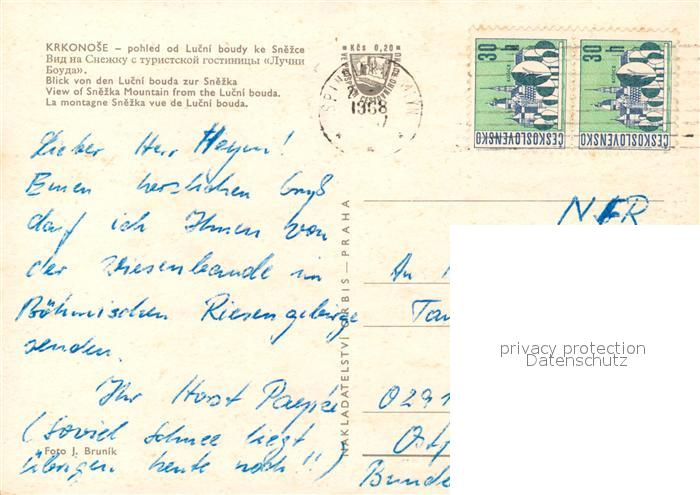 KRKONOŠE – pohled od Luční boudy ke Sněžce
Вид на Снежку с туристской гостиницы «Лучни
Боуда».
Blick von den Luční bouda zur Sněžka
View of Sněžka Mountain from the Luční bouda.
La montagne Sněžka vue de Luční bouda.
Kčs 0,20
1968
30 h
ČESKOSLOVENSKO
30 h
ČESKOSLOVENSKO
Lieber Herr Heym!
Einen herzlichen Gruß
darf ich Ihnen von
der Wiesenbaude im
Böhmischen Riesengebirge
senden.
Ihr Horst
(Soviel Schnee liegt
übrigen heute noch!!)
Foto J. Bruník
NAKLADATELSTVÍ ORBIS — PRAHA
An
0291
Bunde
privacy protection
Datenschutz